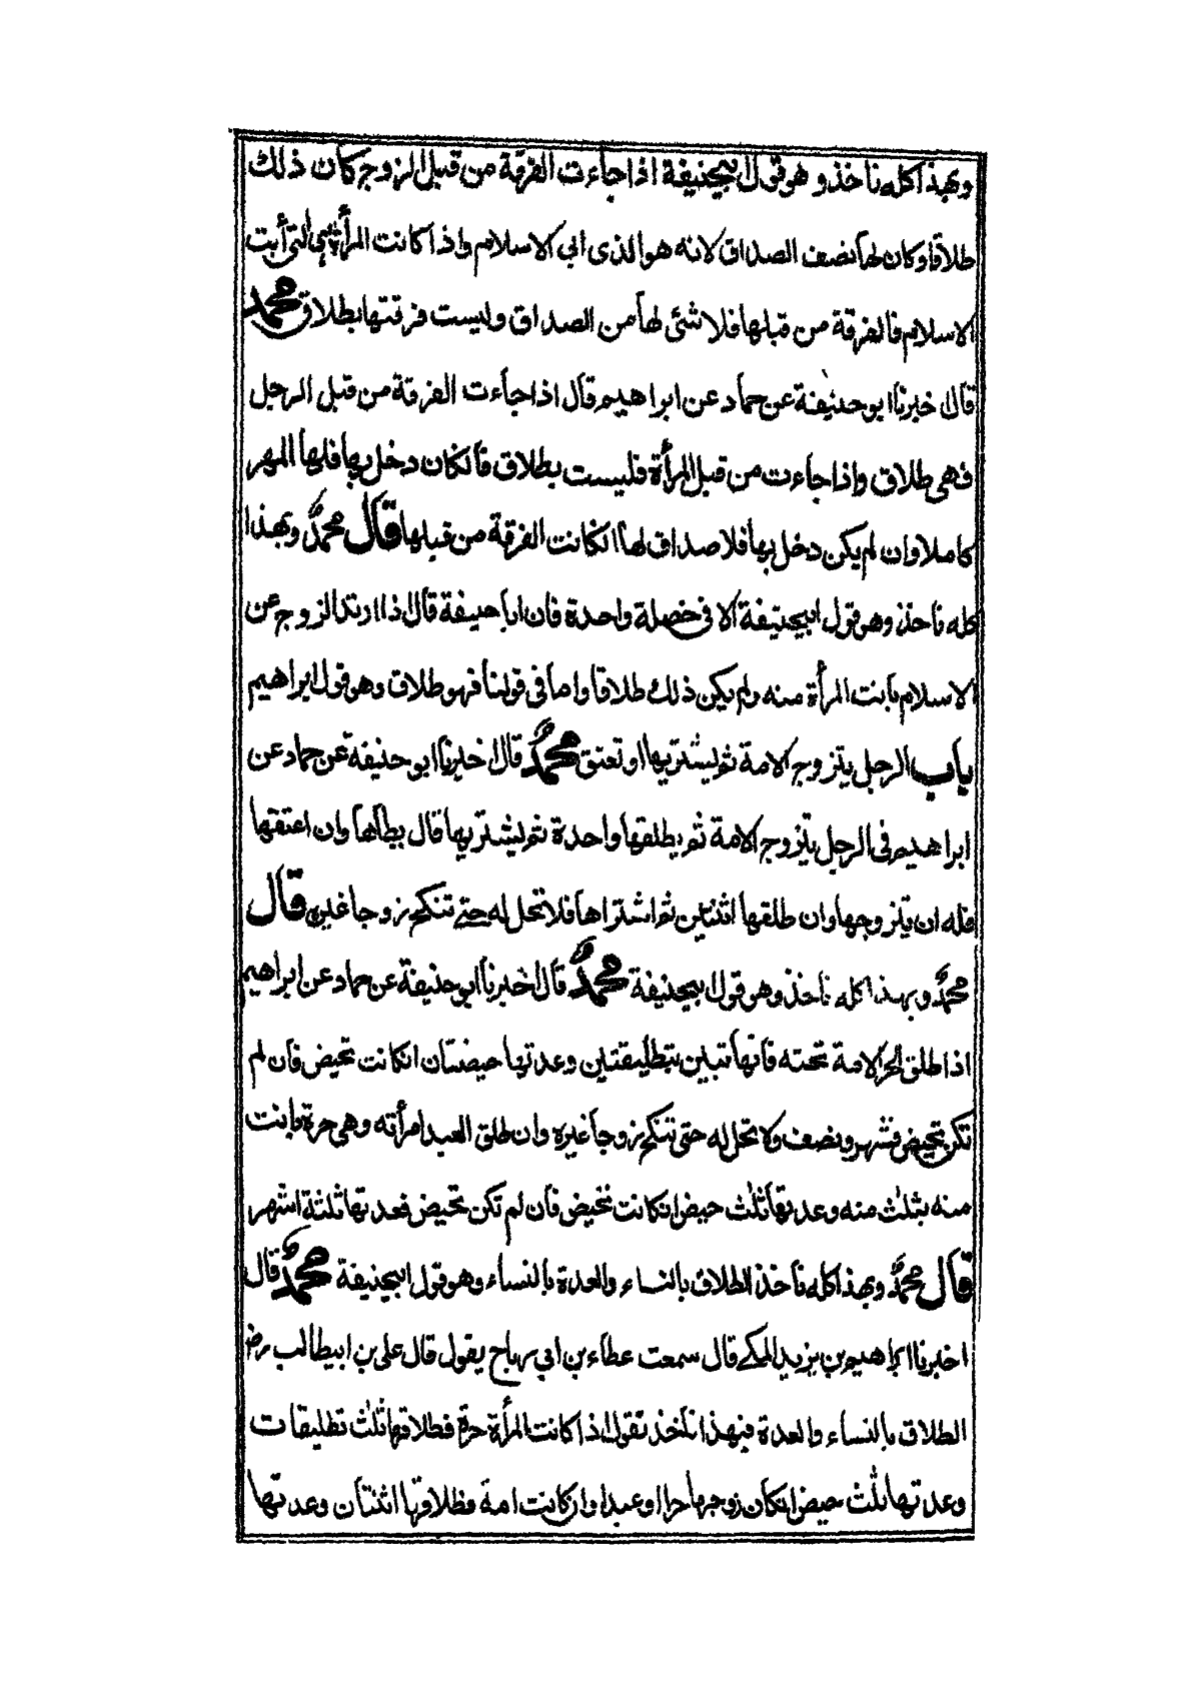 وبهذا كله ناخذ وهو قول ابيحنيفة اذا جاءت الفرقة من قبل الزوج كان ذلك
طلاقا وكان لها نصف الصداق لانه هو الذى ابى الاسلام واذا كانت المرأة هى التى أبت
الاسلام فالفرقة من قبلها فلا شئ لها من الصداق وليست فرقتها بطلاق محمد
قال اخبرنا ابو حنيفة عن حماد عن ابراهيم قال اذا جاءت الفرقة من قبل الرجل
فهى طلاق واذا جاءت من قبل المرأة فليست بطلاق فانكان دخل بها فلها المهر
كاملا وان لم يكن دخل بها فلا صداق لها انكانت الفرقة من قبلها قال محمد وبهذا
كله ناخذ وهو قول ابيحنيفة الا فى خصلة واحدة فان ابا حنيفة قال اذا ارتد الزوج عن
الاسلام بانت المرأة منه ولم يكن ذلك طلاقا واما فى قولنا فهو طلاق وهو قول ابراهيم
باب الرجل يتزوج الامة ثم يشتريها او تعتق محمد قال اخبرنا ابو حنيفة عن حماد عن
ابراهيم فى الرجل يتزوج الامة ثم يطلقها واحدة ثم يشتريها قال يطأها وان اعتقها
فله ان يتزوجها وان طلقها اثنتين ثم اشتراها فلا تحل له حتى تنكح زوجا غيره قال
محمد وبهذا كله ناخذ وهو قول ابيحنيفة محمد قال اخبرنا ابو حنيفة عن حماد عن ابراهيم
اذا طلق الحر الامة تحته فانها تبين بتطليقتين وعدتها حيضتان انكانت تحيض فان لم
تكن تحيض فشهر ونصف ولا تحل له حتى تنكح زوجا غيره وان طلق العبد امرأته وهى حرة بانت
منه بثلث منه وعدتها ثلث حيض انكانت تحيض فان لم تكن تحيض فعدتها ثلثة اشهر
قال محمد وبهذا كله ناخذ الطلاق بالنساء والعدة بالنساء وهو قول ابيحنيفة محمد قال
اخبرنا ابراهيم بن يزيد المكى قال سمعت عطاء بن ابى رباح يقول قال على بن ابيطالب رض
الطلاق بالنساء والعدة فبهذا ناخذ نقول اذا كانت المرأة حرة فطلاقها ثلث تطليقات
وعدتها ثلث حيض انكان زوجها حرا او عبدا وان كانت امة فطلاقها اثنتان وعدتها